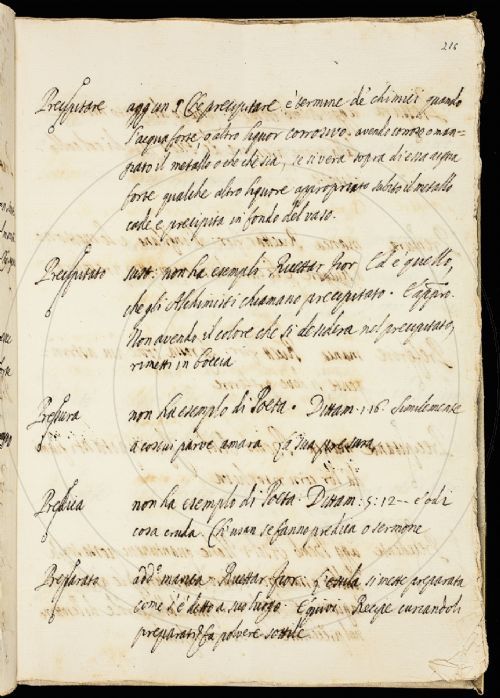 216
Precipitare aggiun. § E precipitare è termine de' chimici quando
l'acqua forte, o altro liquor corrosivo. avendo corroso o man-
giato il metallo o che che sia, se si versa sopra di esso acqua
forte qualche altro liquore appropriato subito il metallo
cade e precipita in fondo del vaso.
Precipitato sust: non ha esempli. Ricettar. fior. Ed è quello,
che gli Alchimisti chiamano precipitato. E appro.
Non avendo il colore che si desidera nel precipitato,
rimetti in boccia
Pressura non ha esempio di Poeta. Dittam: 1 16. Similemente
a costui parve amara la sua pressura
Predica non ha esempio di Poeta. Dittam: 5: 12 e odi
cosa cruda. Ch' usan se fanno predica o sermone
Preparato add.o manca Ricettar. fior. si mette preparata
come s'è detto a suo luogo. E quivi. Recipe
preparati fa polvere sottile